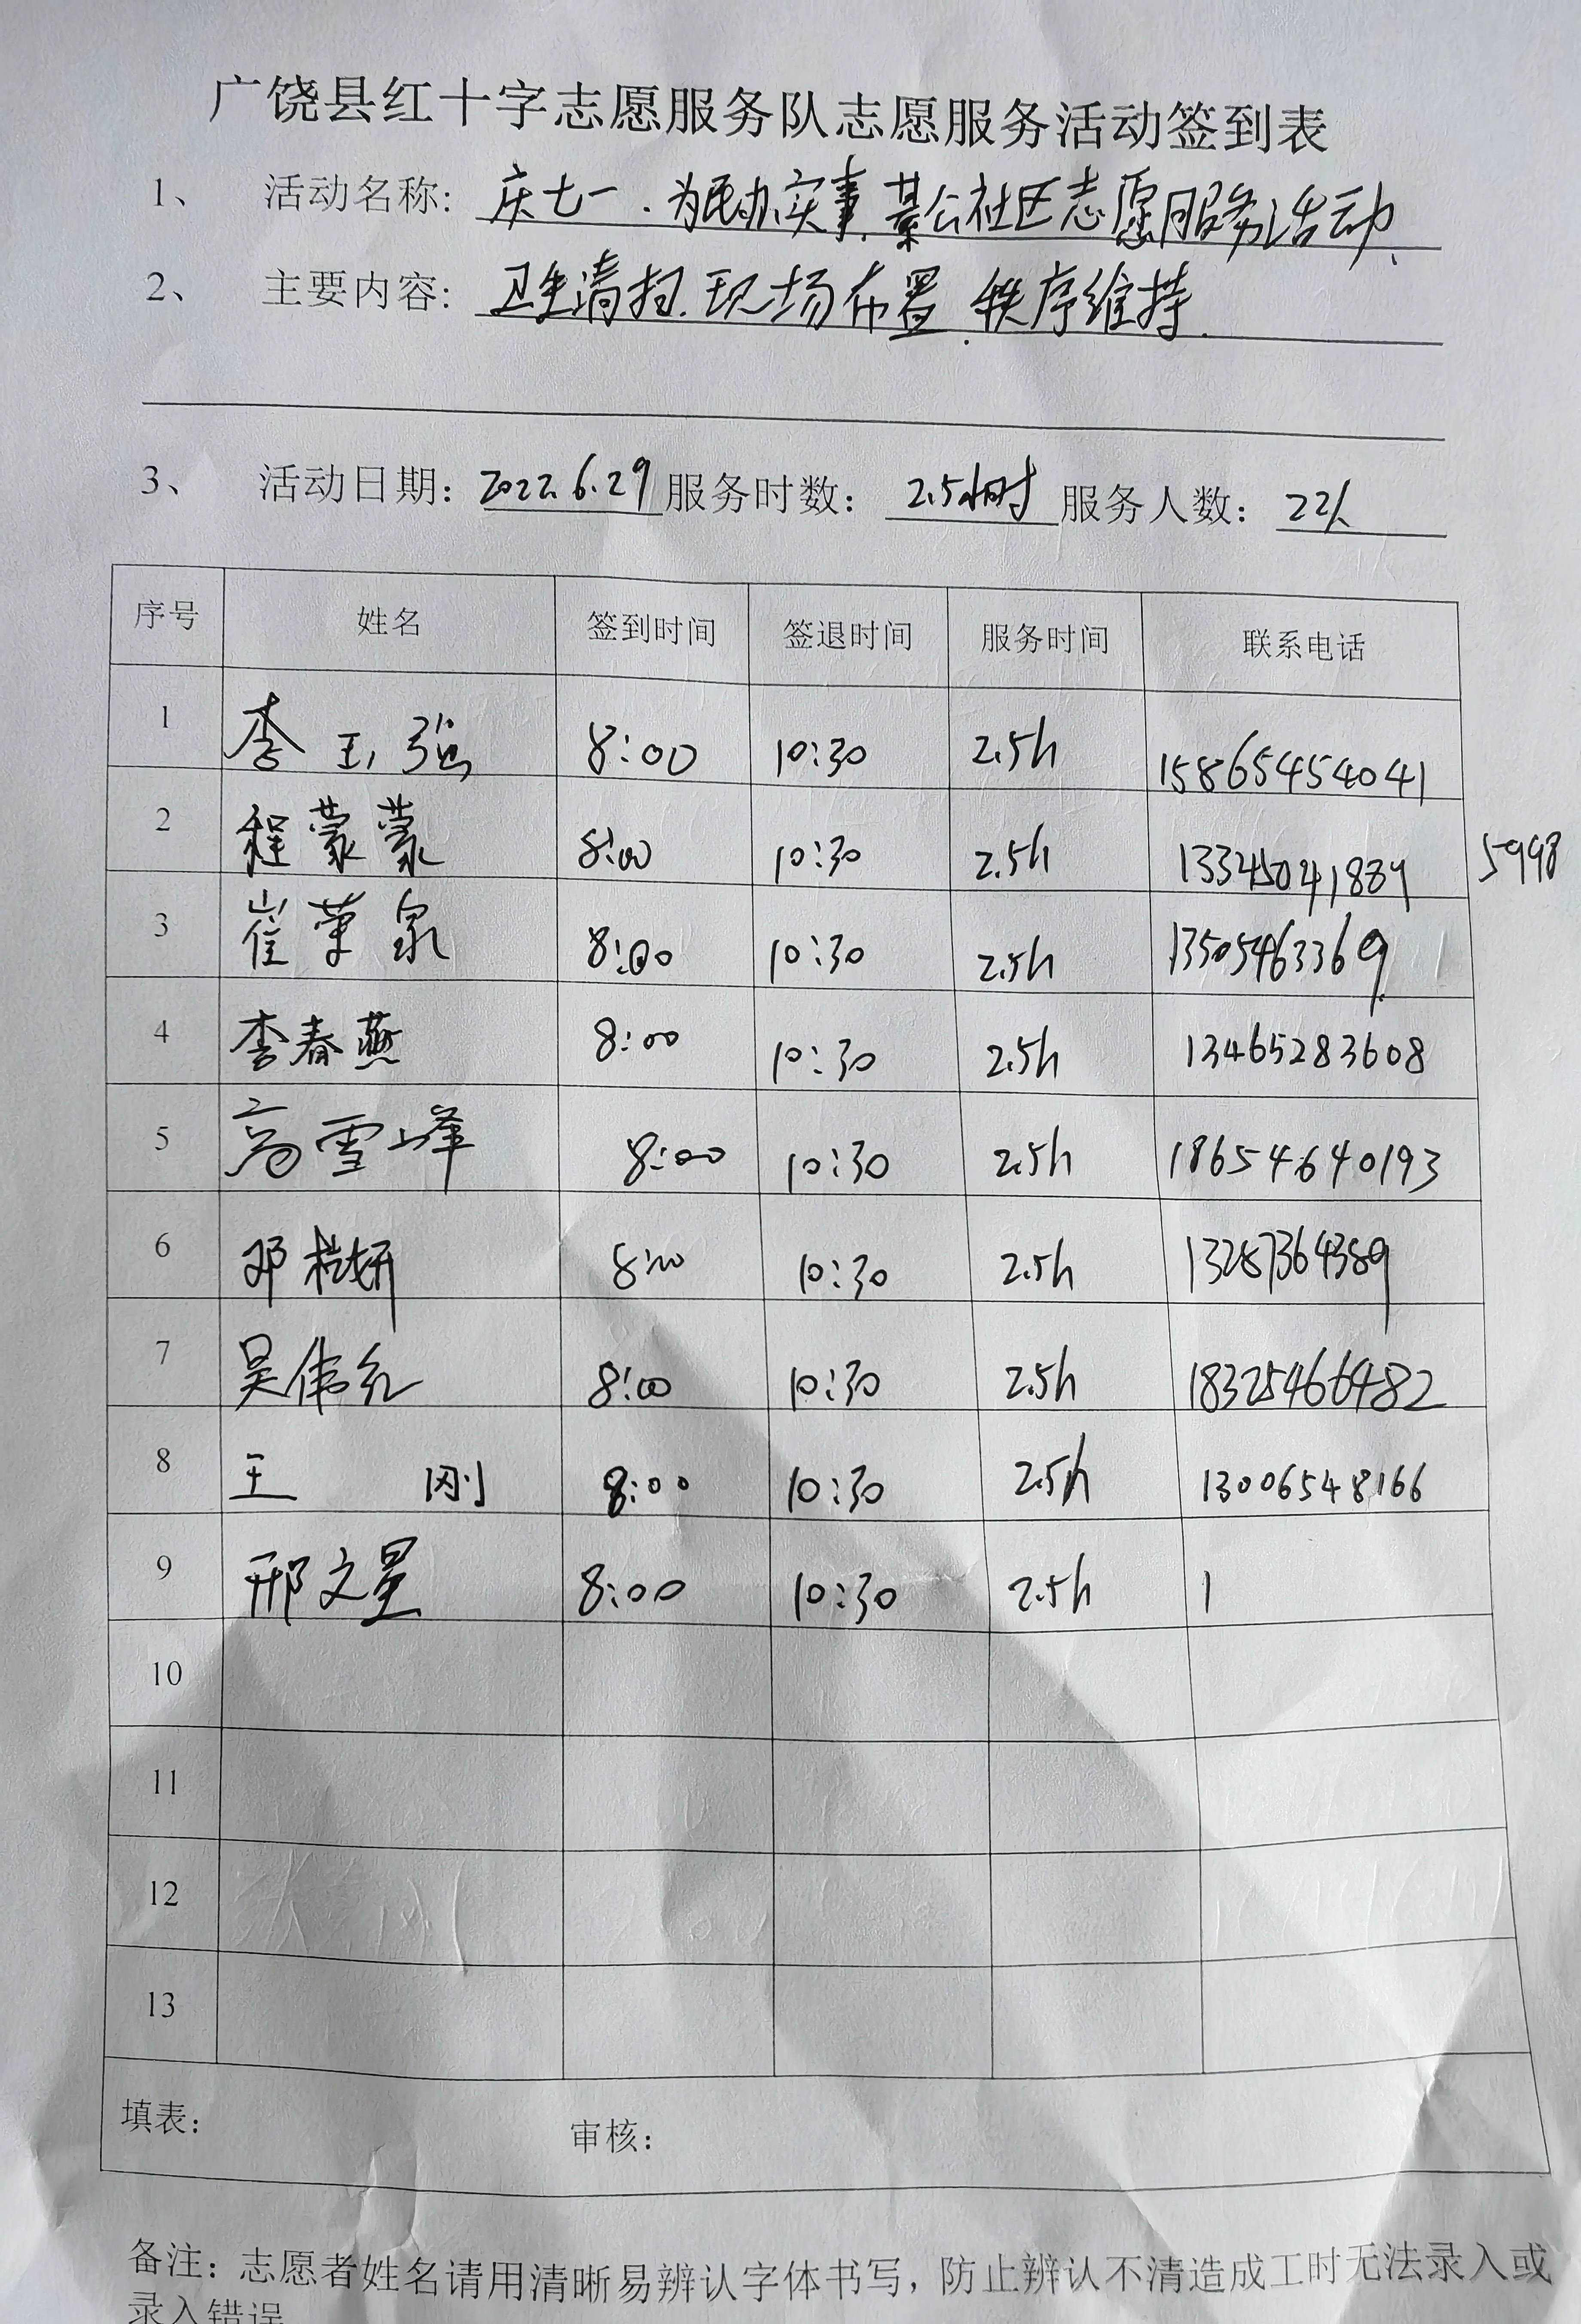 广饶县红十字志愿服务队志愿服务活动签到表
1、 活动名称: 庆七一.为民办实事,綦公社区志愿服务活动.
2、 主要内容: 卫生清扫.现场布置.秩序维持.
3、 活动日期: 2022.6.29 服务时数: 2.5小时 服务人数: 22人
序号 姓名 签到时间 签退时间 服务时间 联系电话
1 李玉强 8:00 10:30 2.5h 15865454041
2 程蒙蒙 8:00 10:30 2.5h 5998
3 崔荣泉 8:00 10:30 2.5h 13505463369
4 李春燕 8:00 10:30 2.5h 13465283608
5 高雪峰 8:00 10:30 2.5h 18654640193
6 邓桂妍 8:00 10:30 2.5h 13287364389
7 吴伟红 8:00 10:30 2.5h 18325466482
8 王 刚 8:00 10:30 2.5h 13006548166
9 邢文星 8:00 10:30 2.5h 1
10
11
12
13
填表: 审核:
备注:志愿者姓名请用清晰易辨认字体书写,防止辨认不清造成工时无法录入或
录入错误